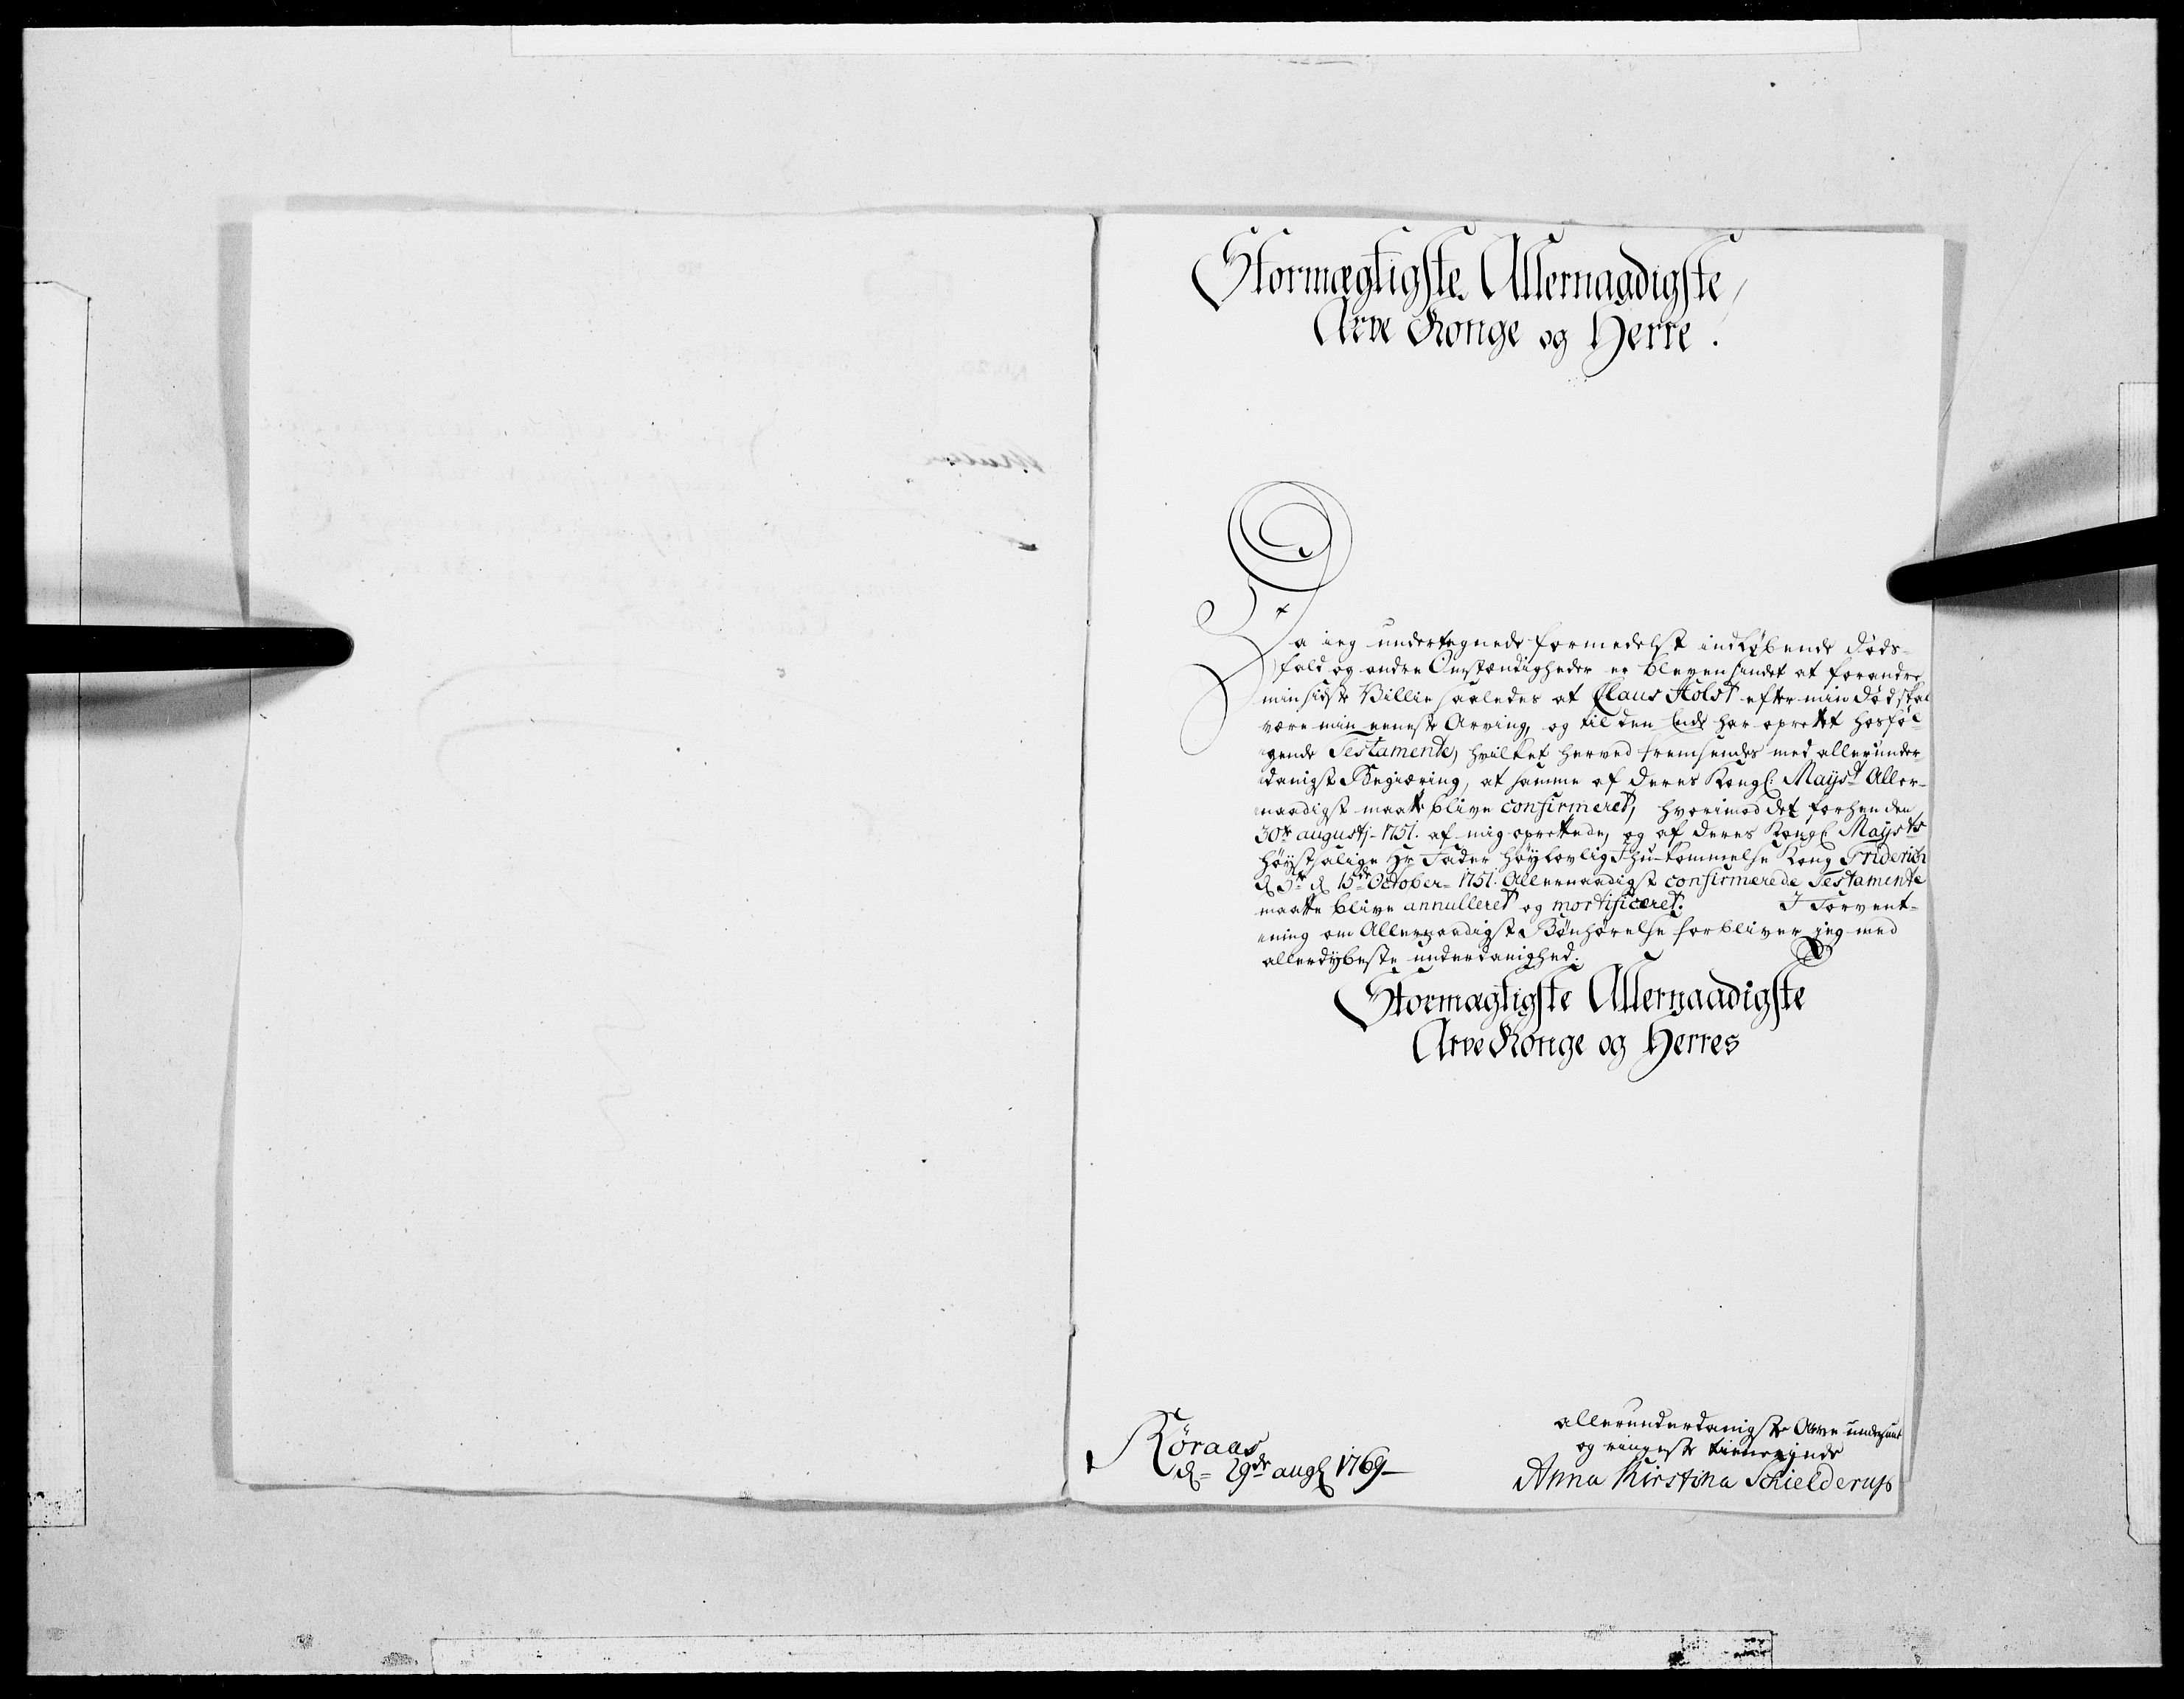 Stormægtigste Allernaadigste,
Arve Konge og Herre.
Da ieg undertegnede formedelst indløbende Døds-
fald og andre Omstændigheder er bleven sindet at forandre
min sidste Villie saaledes at Claus Holst efter min Død skal
være min eeneste Arving, og til den Ende har oprettet hosføl-
gende Testamente, hvilket herved fremsendes med allerunder-
danigst Begiæring, at samme af Deres Kongl: Mayst Aller-
naadigst maatte blive confirmeret, hvorimod det forhen den
30te augustj 1751. af mig oprettede, og af Deres Kongl Maysts
høystsalige Hr Fader høylovlig Ihukommelse Kong Friderich
d 5te d 15de October 1751. Allernaadigst confirmerede Testamente
maatte blive annulleret og mortificeret. I Forvent-
ning om Allernaadigst Bönhørelse forbliver jeg med
allerdybeste underdanighed.
Stormægtigste Allernaadigste
Arve Konge og Herres
Röraas
d= 29de augl 1769
allerunderdanigste Arve undersaat
og ringeste tienerinde
Anna Kirstina Schielderup